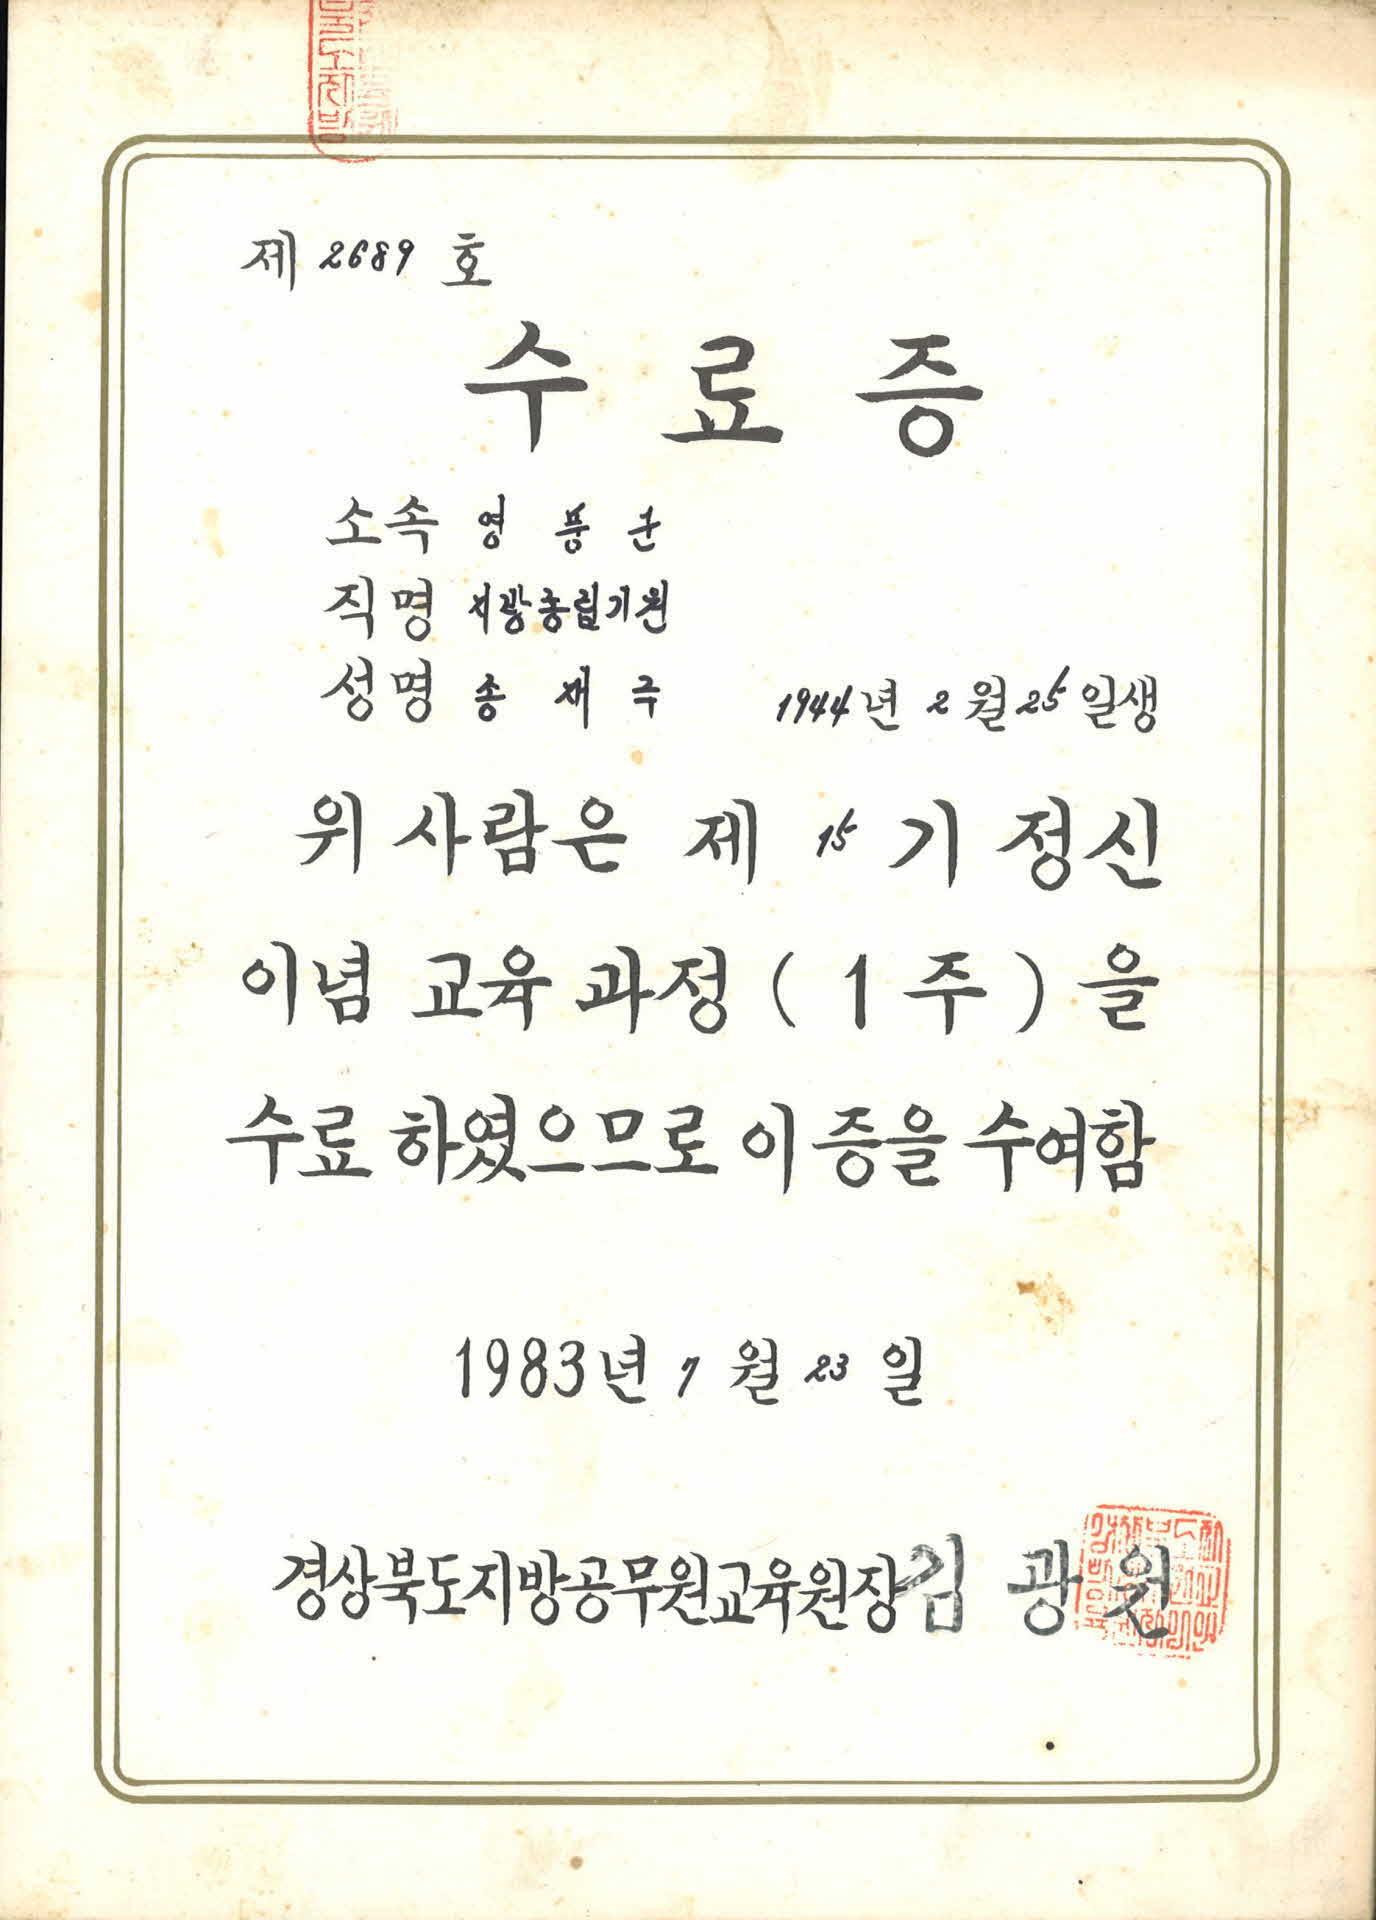 제 2689 호
수 료 증
소속 영 풍 군
직명 지방농림기원
성명 송 재 국 1944년 2월 25일생
위 사람은 제 15기 정신
이념 교육 과정 ( 1 주 ) 을
수료 하였으므로 이 증을 수여함
1983년 7월 23일
경상북도지방공무원교육원장 김 광 원